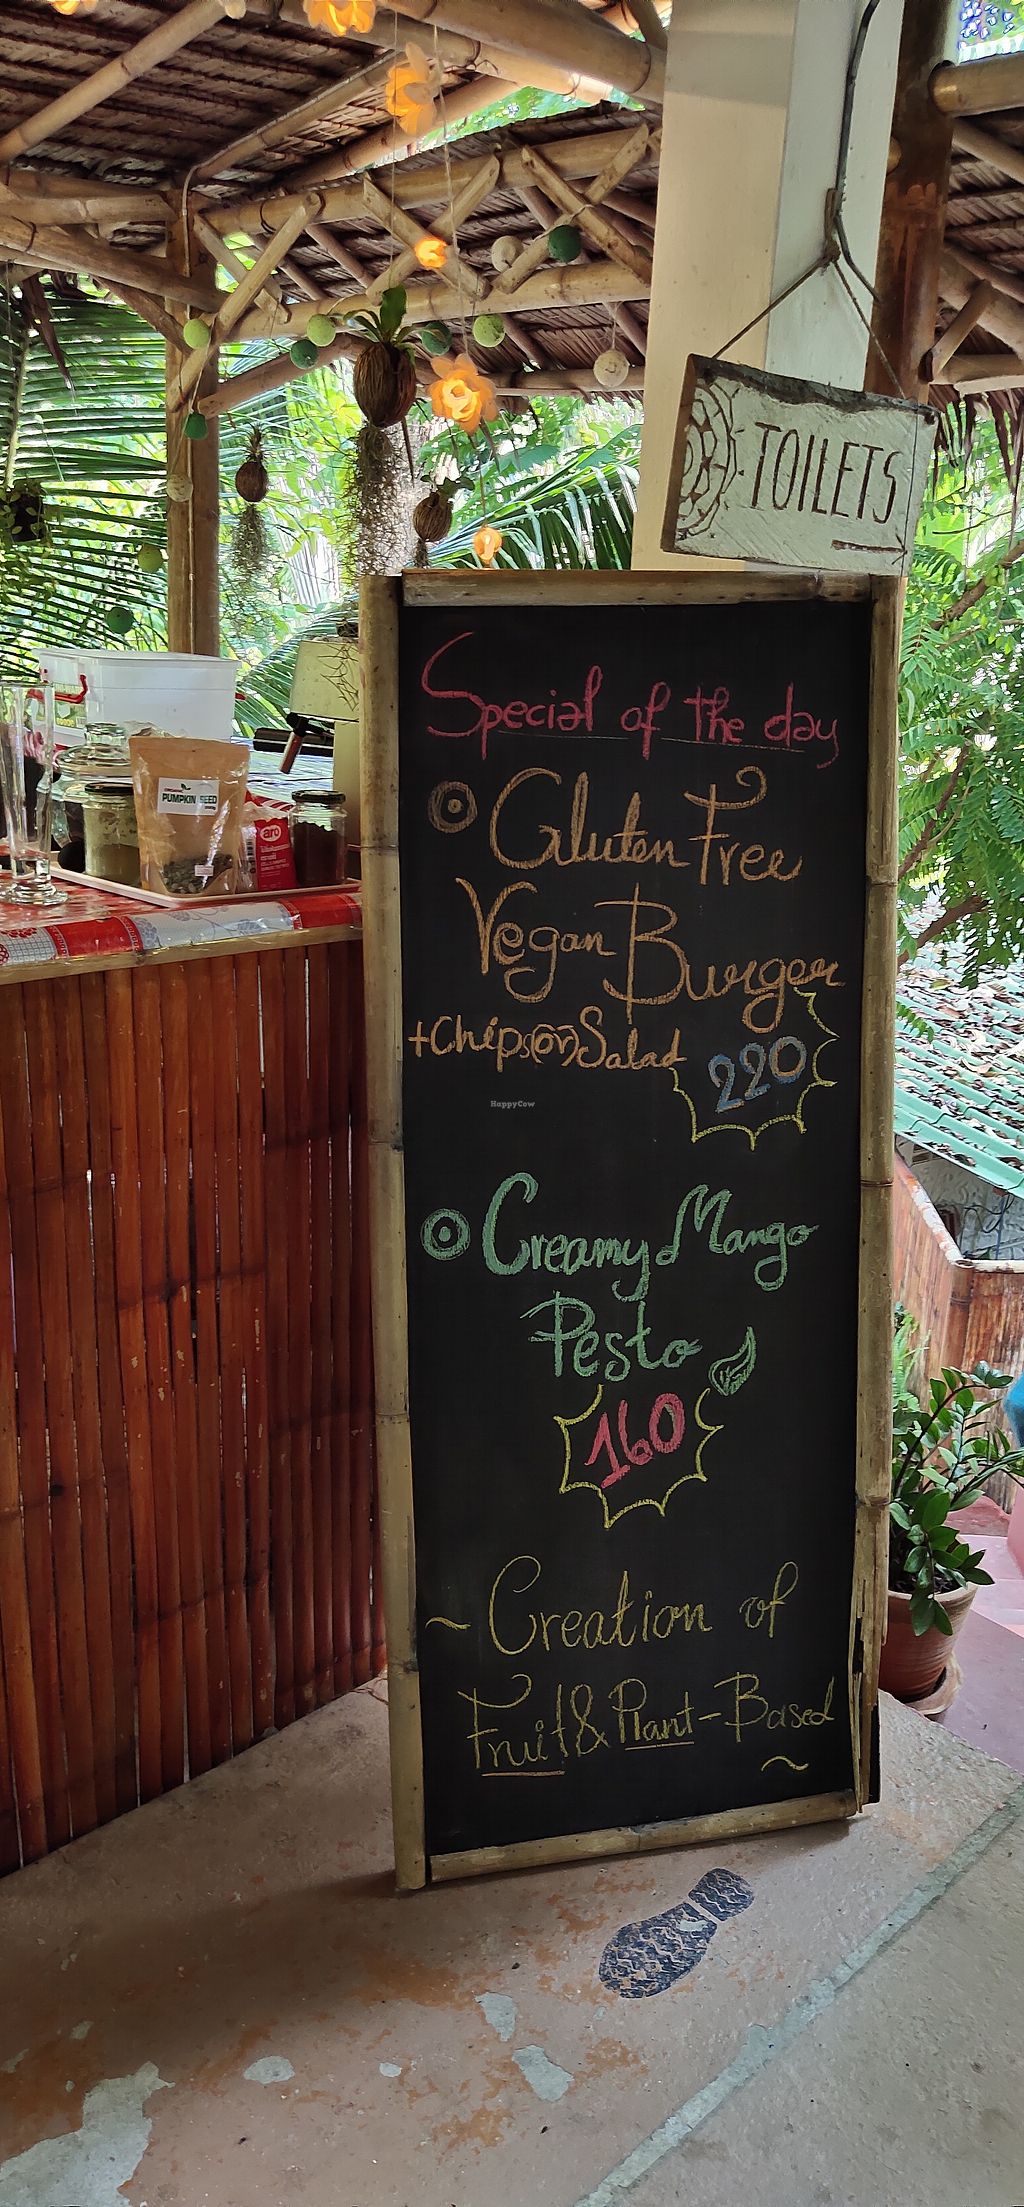 TOILETS
Special of the day
Gluten Free
Vegan Burger
+Chips (or) Salad
220
Creamy Mango
Pesto
160
~ Creation of
Fruit & Plant-Based ~
ORGANIC
PUMPKIN SEED
aro
HappyCow